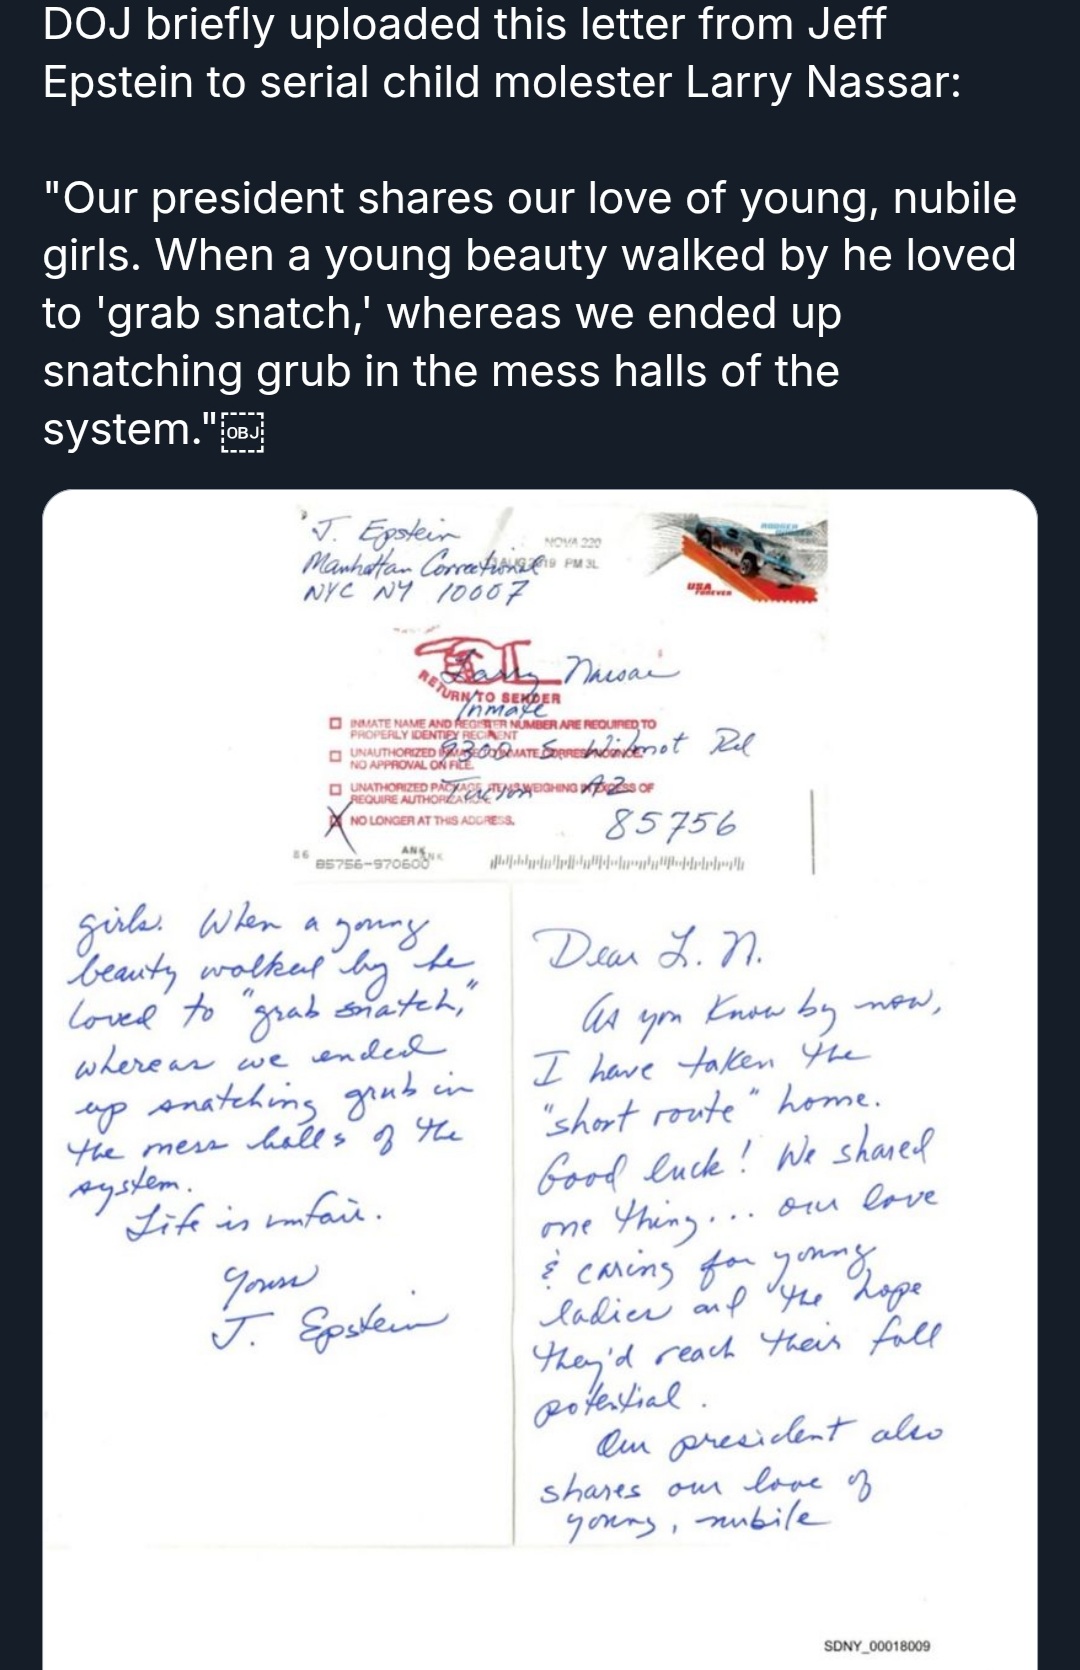 DOJ briefly uploaded this letter from Jeff
Epstein to serial child molester Larry Nassar:
"Our president shares our love of young, nubile
girls. When a young beauty walked by he loved
to 'grab snatch,' whereas we ended up
snatching grub in the mess halls of the
system."
J. Epstein
Manhattan Correctional
NYC NY 10007
NOVA 220
AUG 2019 PM 3L
USA
FOREVER
Larry Nassar
RETURN TO SENDER
Inmate
INMATE NAME AND REGISTER NUMBER ARE REQUIRED TO
PROPERLY IDENTIFY RECIPIENT
9300 S. Wilmot Rd
UNAUTHORIZED INMATE TO INMATE CORRESPONDENCE.
NO APPROVAL ON FILE.
Tucson AZ
UNATHORIZED PACKAGE ITEMS WEIGHING IN EXCESS OF
REQUIRE AUTHORIZATION
NO LONGER AT THIS ADDRESS.
85756
ANK
85756-970600
girls. When a young
beauty walked by he
loved to "grab snatch,"
whereas we ended
up snatching grub in
the mess halls of the
system.
Life is unfair.
Yours
J. Epstein
Dear L. N.
As you know by now,
I have taken the
"short route" home.
Good luck! We shared
one thing... our love
& caring for young
ladies and the hope
they'd reach their full
potential.
Our president also
shares our love of
young, nubile
SDNY_00018009